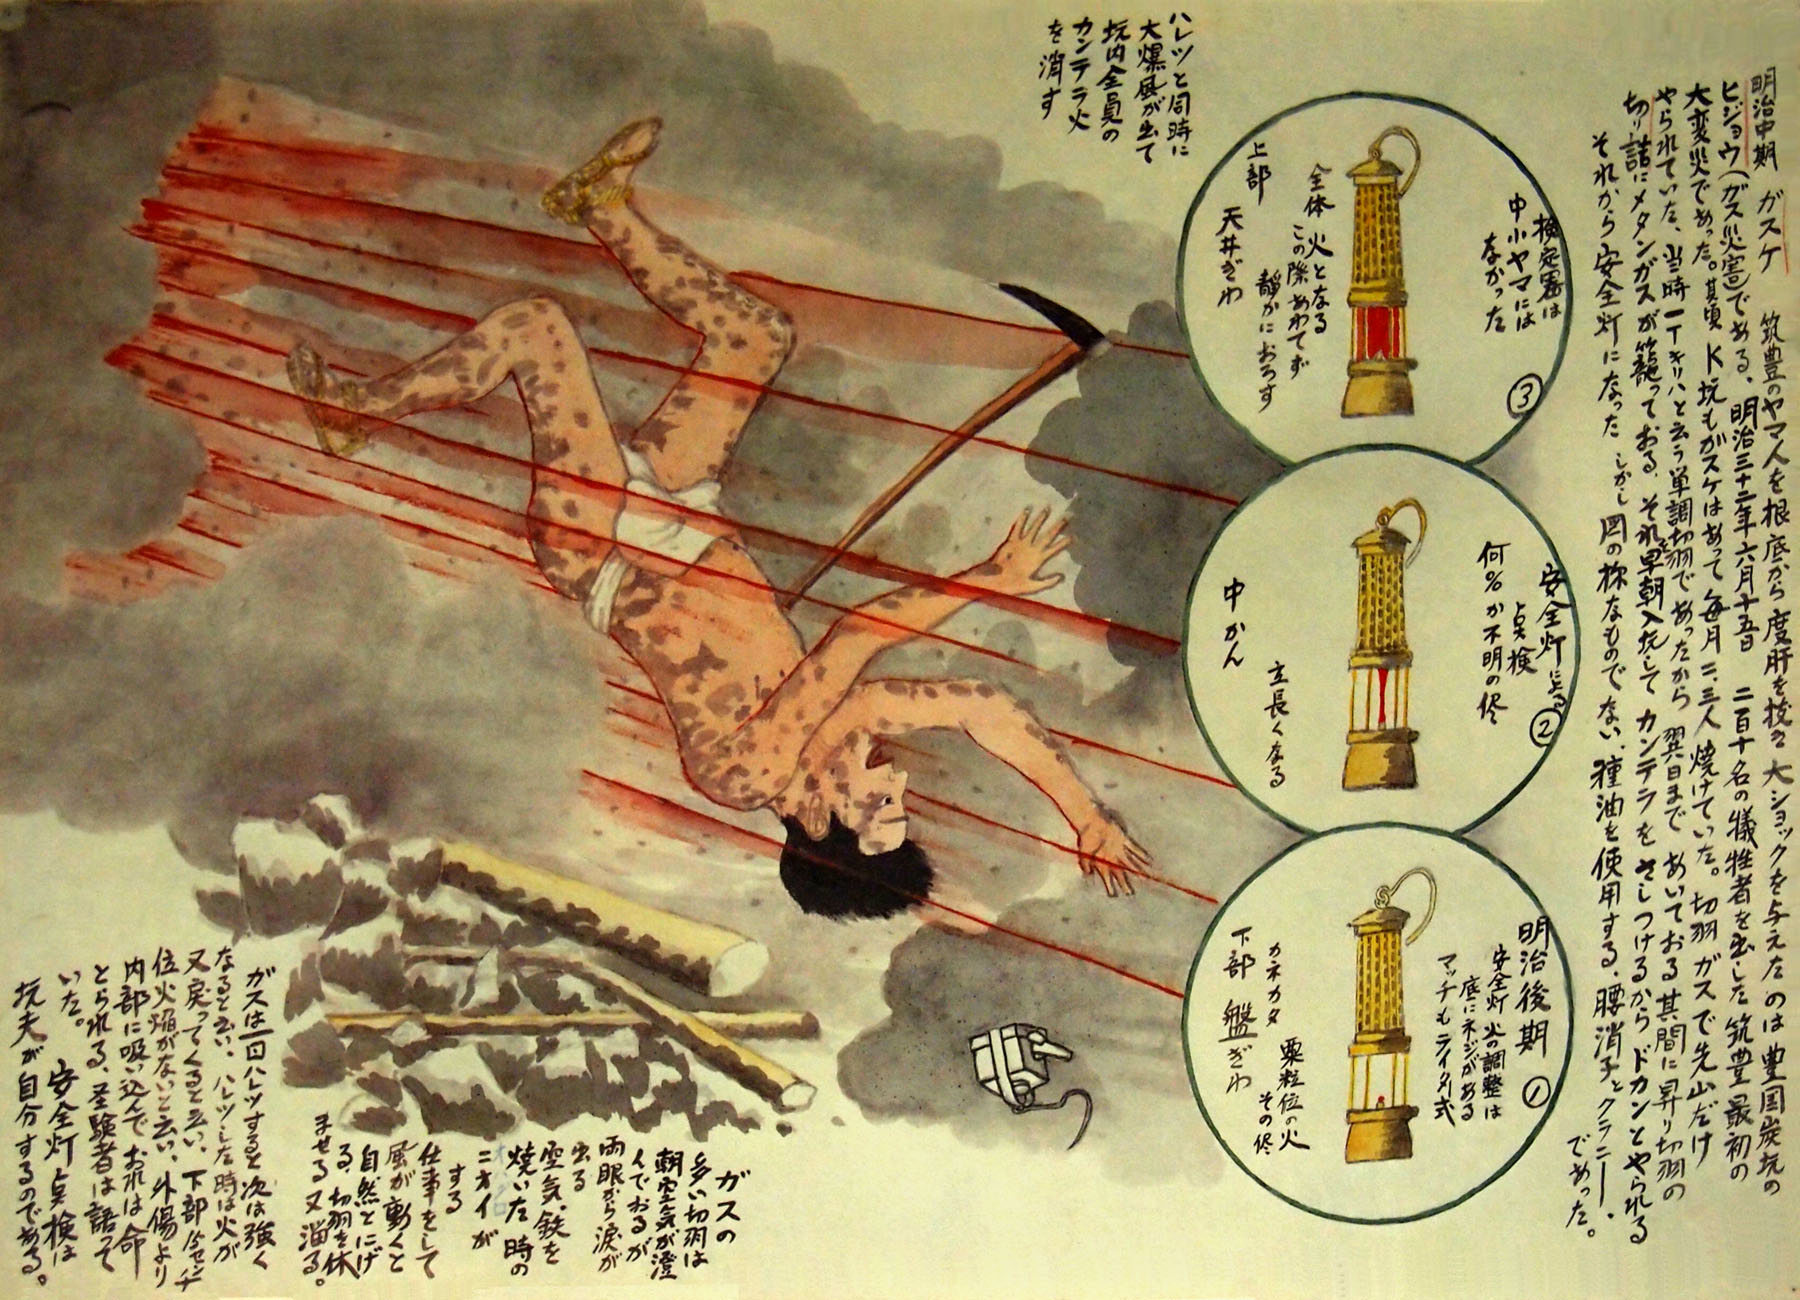 明治中期　ガスケ　筑豊のヤマ人を根底から度肝を抜き大ショックを与えたのは豊国炭坑の
ヒジョウ(ガス災害)である、明治三十二年六月十五日　二百十名の犠牲者を出した筑豊最初の
大変災であった。其頃K坑もガスケはあって毎月二、三人焼けていた。切羽ガスで先山だけ
やられていた、当時一丁キリハと云う単調切羽であったから　翌日まであいておる其間に昇り切羽の
切り詰にメタンガスが籠っておる、それを早朝入坑してカンテラをさしつけるからドカンとやられる
それから安全灯になった　しかし図の様なものでない、種油を使用する、腰消子とクラニー、
であった。
ハレツと同時に
大爆風が出て
坑内全員の
カンテラ火
を消す
検定器は
中小ヤマには
なかった
③
全体　火となる
この際あわてず
静かにおろす
上部　天井ぎわ
安全灯による
点検
②
何%か不明の侭
立長くなる
中かん
明治後期
①
安全灯　火の調整は
底にネジがある
マッチもライタ式
粟粒位の火
その侭
カネカタ
下部　盤ぎわ
ガスの
多い切羽は
朝空気が澄
んでおるが
両眼から涙が
出る
空気、鉄を
焼いた時の
ニオイが
する
仕事をして
風が動くと
自然とにげ
る、切羽を休
ませる又溜る。
ガスは一回ハレツすると次は強く
なると云い、ハレツした時は火が
又戻ってくると云い、下部15センチ
位火焔がないと云い、外傷より
内部に吸い込んでおれは命
とられる、経験者は語って
いた。
安全灯点検は
坑夫が自分するのである。